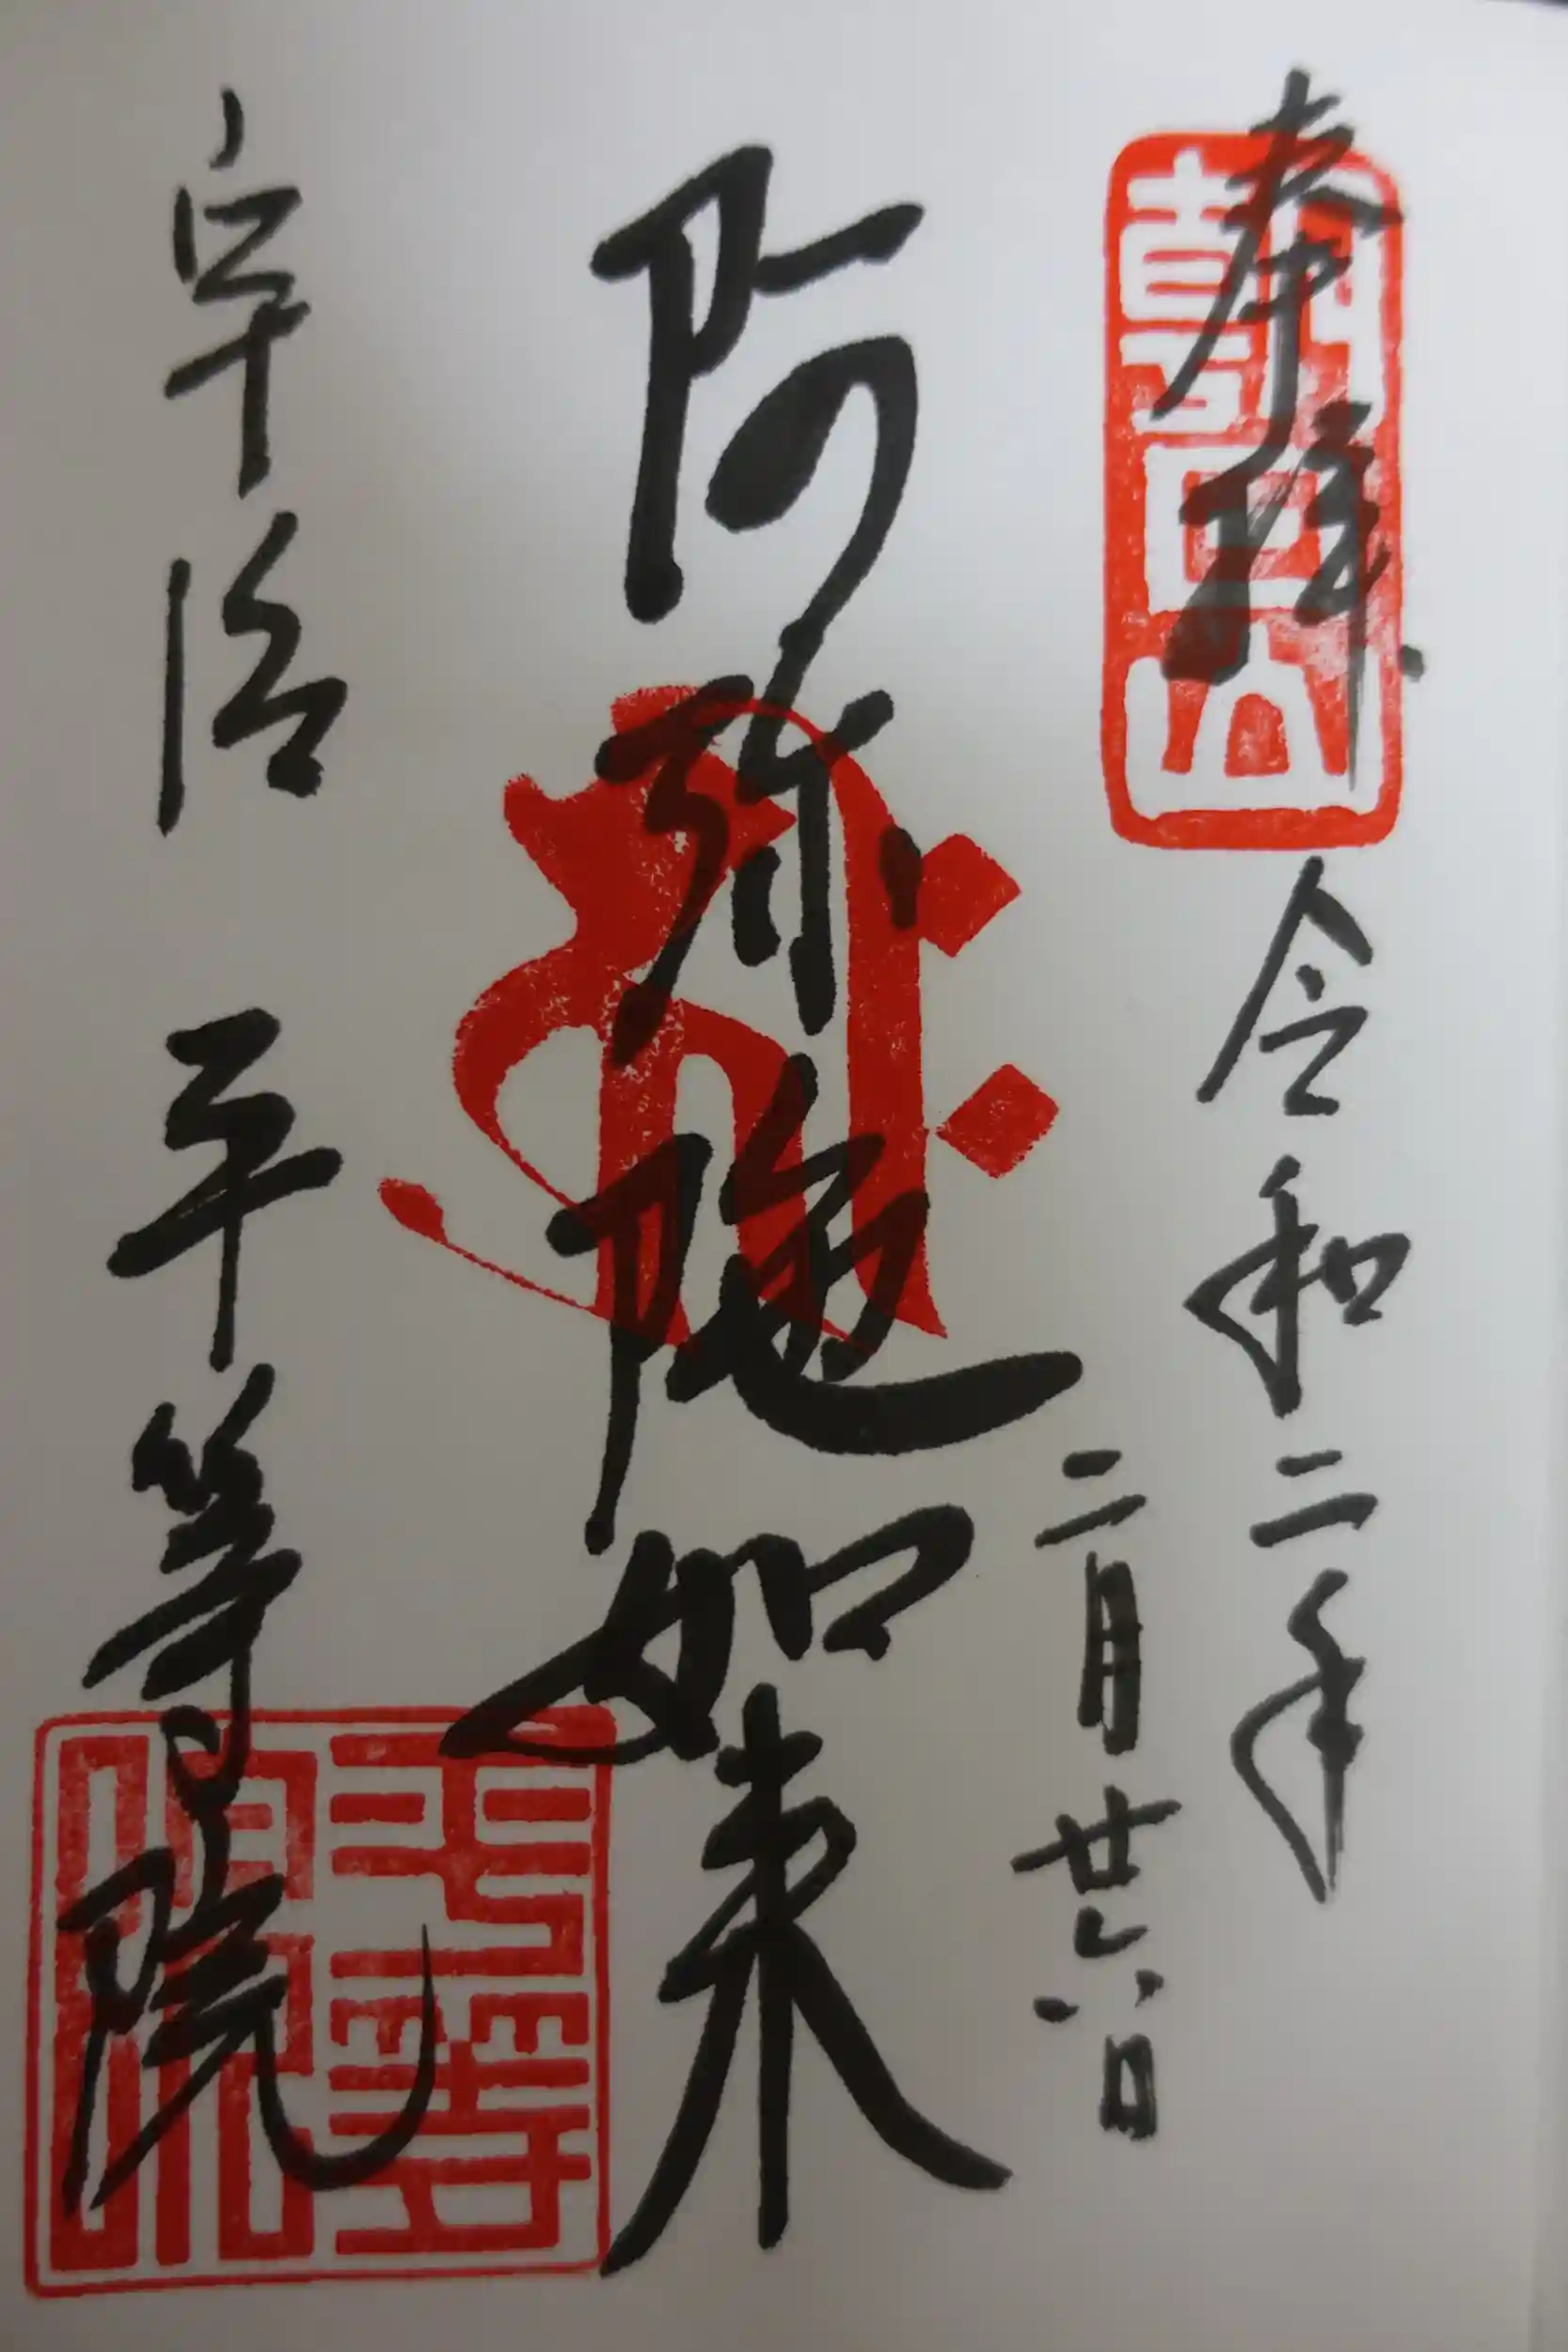 奉拝
朝日山
令和二年
二月廿六日
阿弥陀如来
宇治 平等院
平等
院印